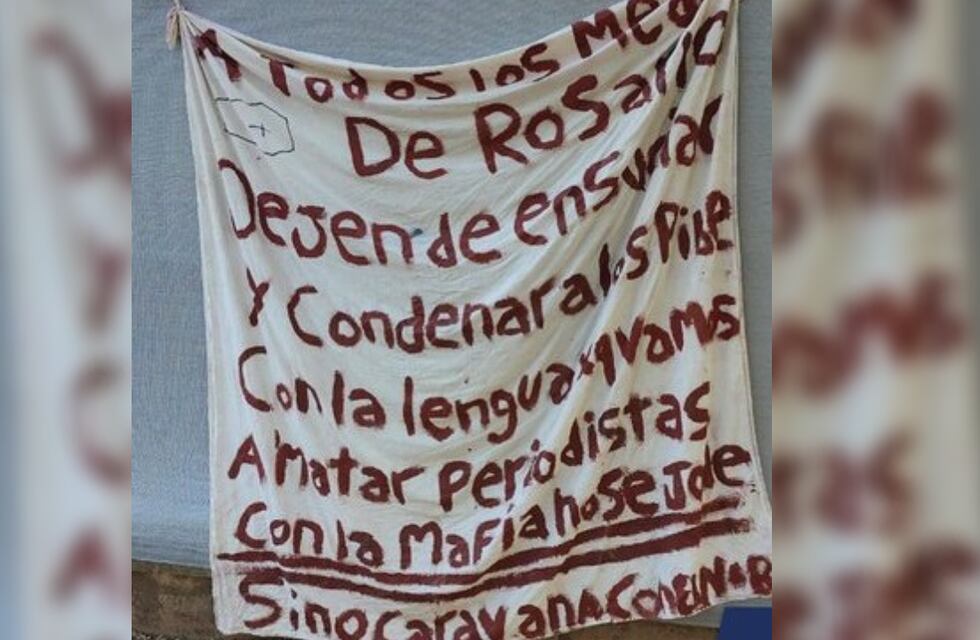 A Todos los Med
De Rosario
Dejen de ensuciar
Y Condenar a los Pibe
Con la lengua xq vamos
A Matar Periodistas
Con la Mafia no se Jode
Sino caravana